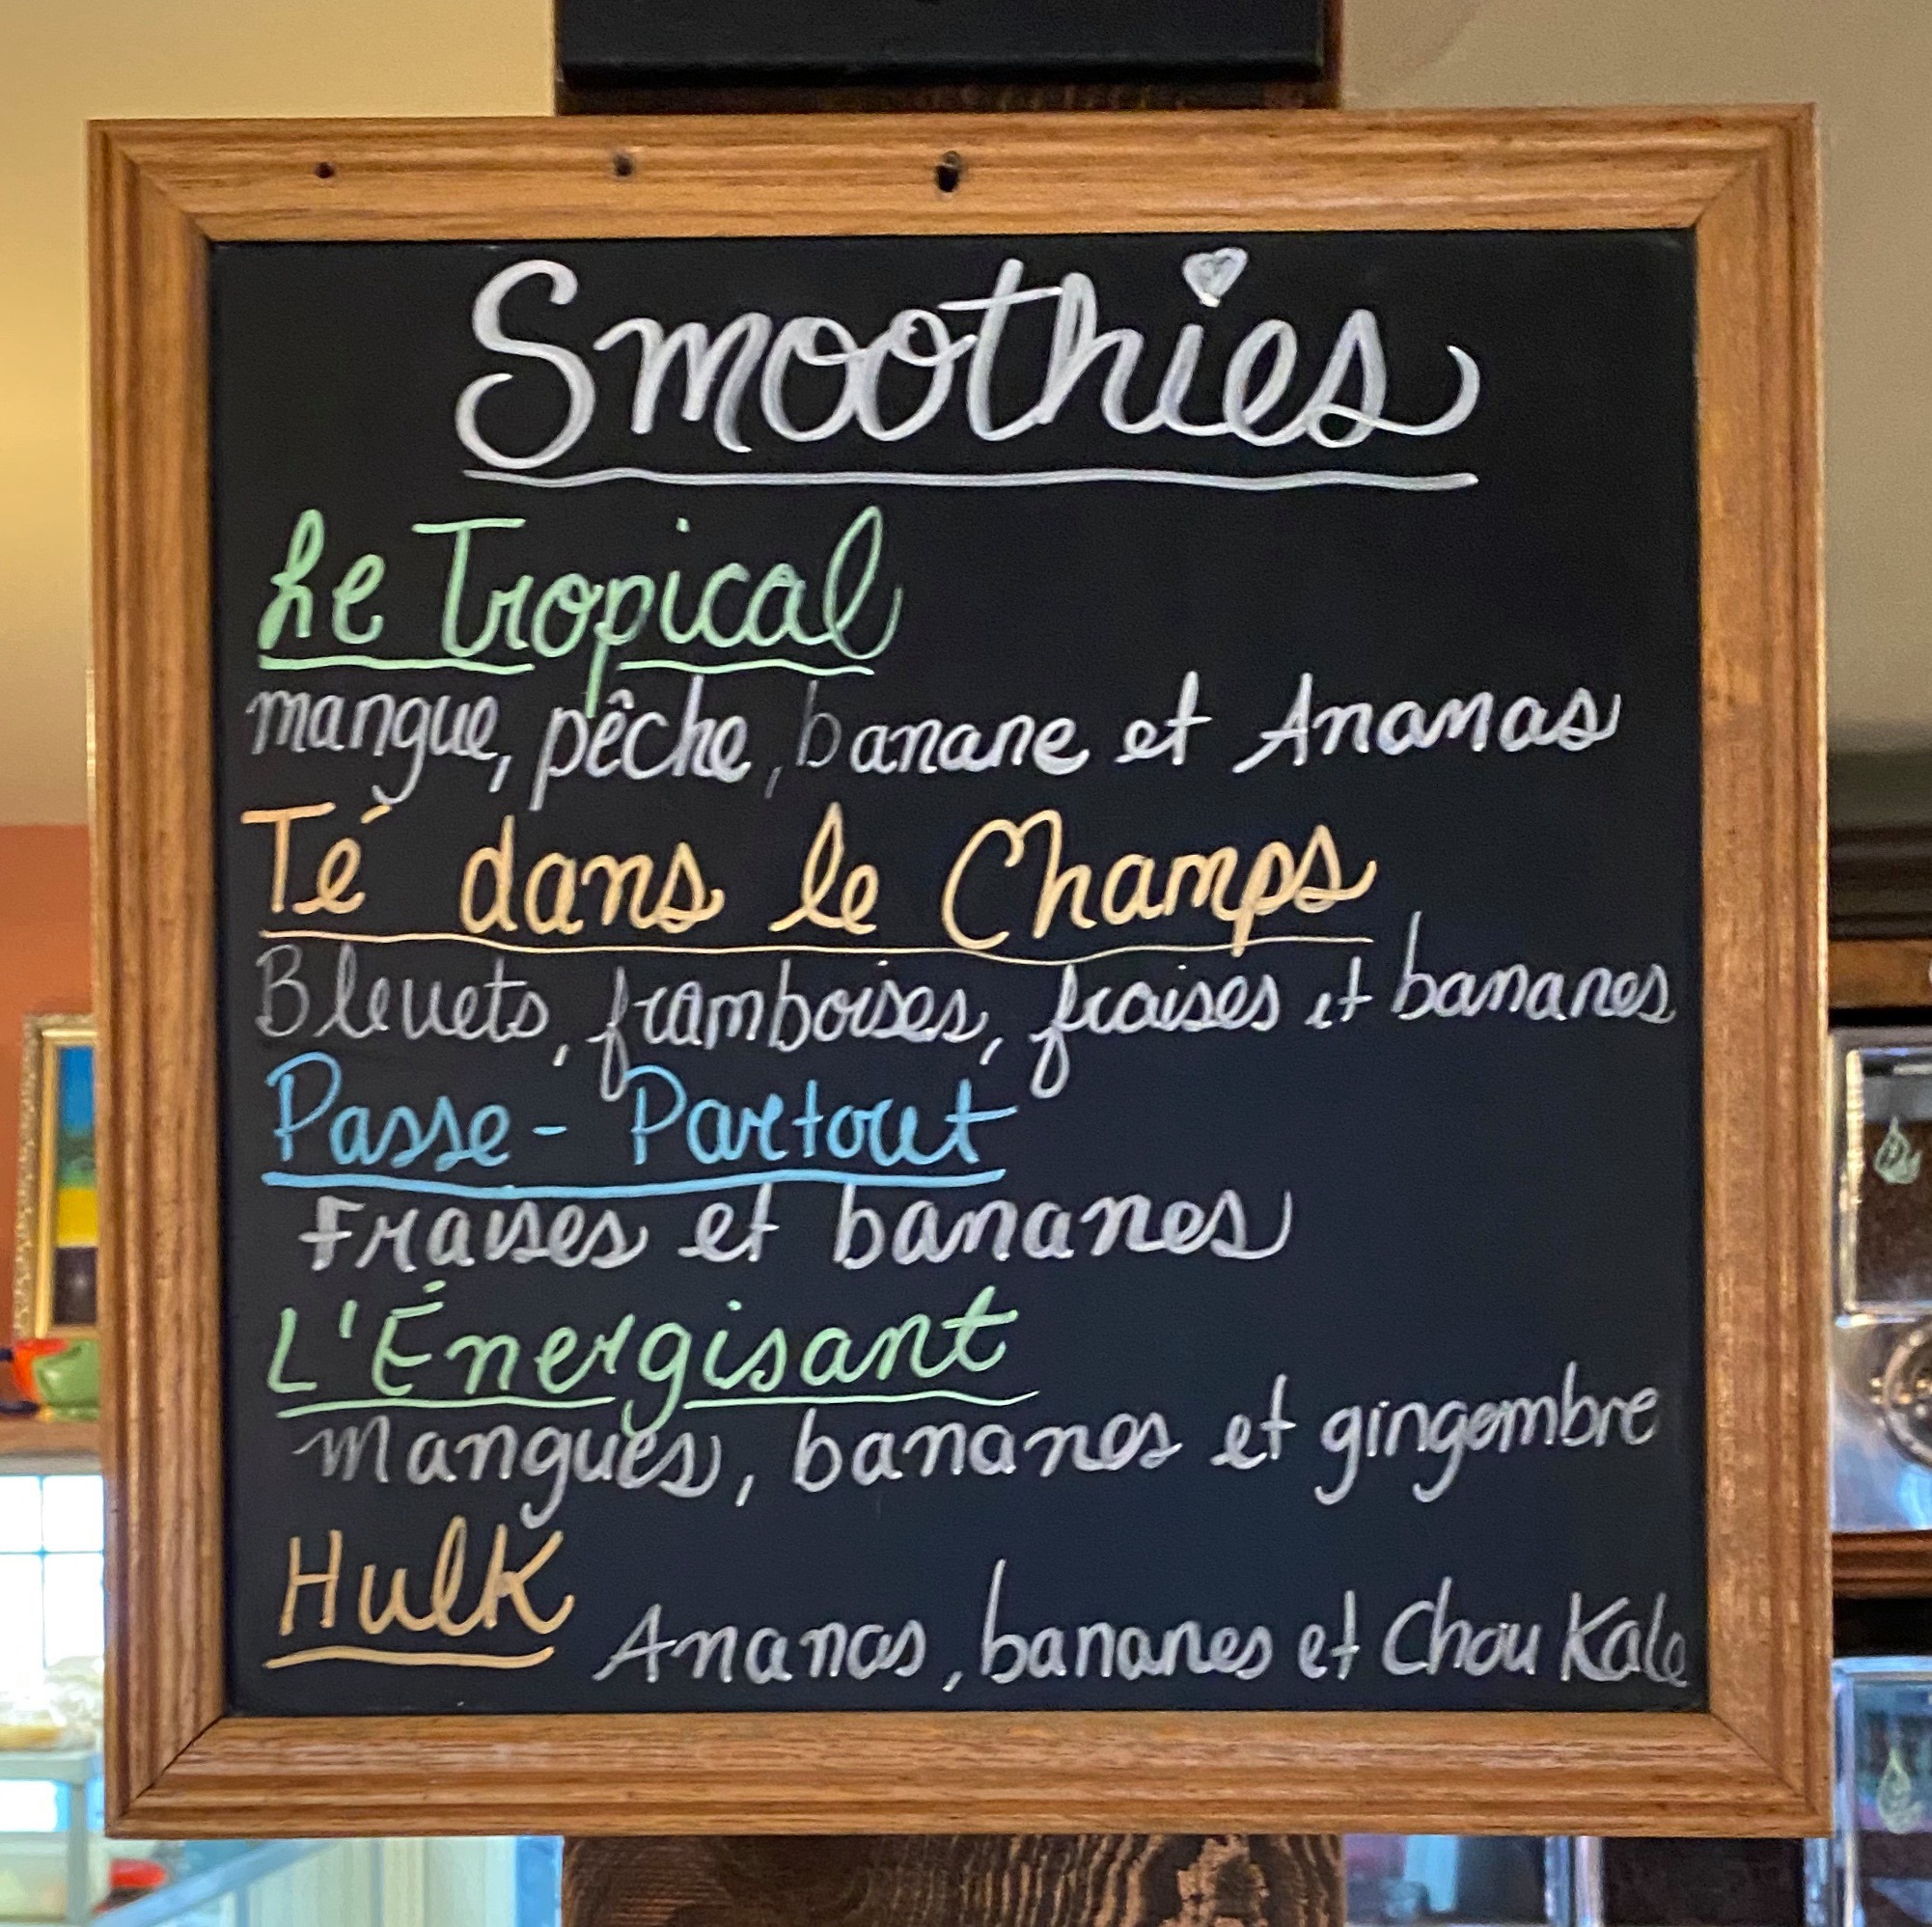 Smoothies
Le Tropical
mangue, pêche, banane et Ananas
Té dans le Champs
Bleuets, framboises, fraises et bananes
Passe-Partout
Fraises et bananes
L'Énergisant
Mangues, bananes et gingembre
Hulk
Ananas, bananes et Chou Kale